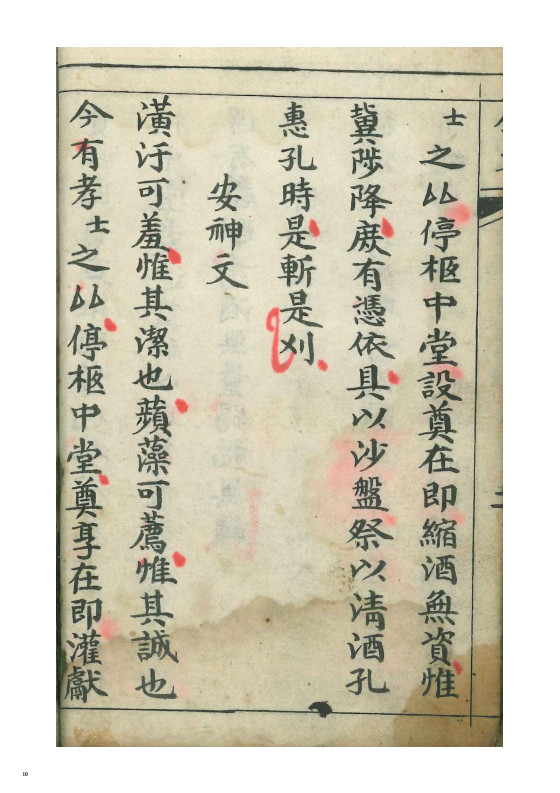 士之厸停柩中堂設奠在即縮酒無資惟
冀陟降庶有憑依具以沙盤祭以清酒孔
惠孔時是斬是刈
安神文
潢汙可羞惟其潔也蘋藻可薦惟其誠也
今有孝士之厸停柩中堂奠享在即灌獻
10